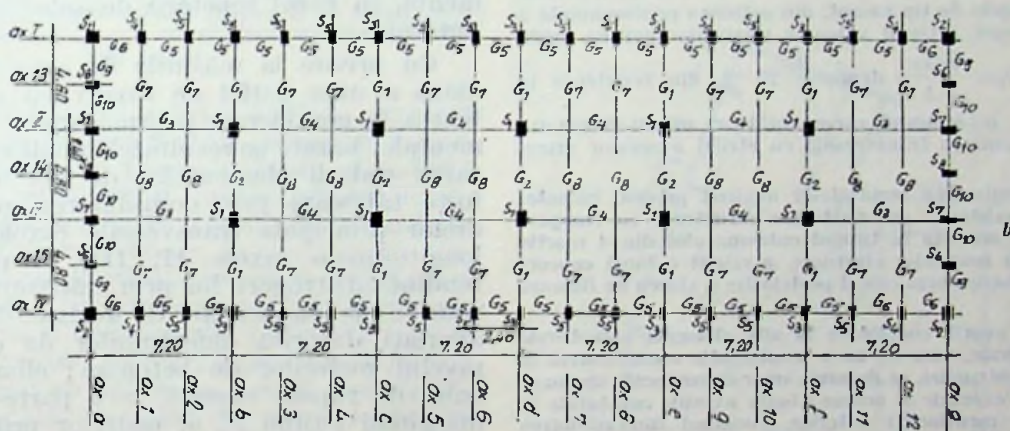 ax I S2 S5 S5 S5 S5 S5 S5 S5 S5 S5 S5 S2
G6 G5 G5 G5 G5 G5 G5 G5 G5 G5 G5 G6
G9 G9
ax 13 S6 G7 G7 G1 G7 G7 G1 G7 G7 G1 G7 G7 G1 G7 G7 G1 G7 G7 S6
G10 G10
ax II S7 G3 S1 G4 S1 G4 S1 G4 S1 G4 S1 G3 S7
G10 G10
ax 14 G8 G8 G2 G8 G8 G2 G8 G8 G2 G8 G8 G2 G8 G8 G2 G8 G8 S6
G10 G10
ax III S7 G3 S1 G4 S1 G4 S1 G4 S1 G4 S1 G3 S7
G10 G10
ax 15 G7 G7 G1 G7 G7 G1 G7 G7 G1 G7 G7 G1 G7 G7 G1 G7 G7 S6
G9 G9
ax IV G6 G5 G5 G5 G5 G5 G5 G5 G5 G5 G6
S2 S4 S5 S5 S5 S5 S5 S5 S5 S5 S5 S2
2,40
7,20 7,20 7,20 7,20 7,20 7,20
ax a ax 1 ax 2 ax b ax 3 ax 4 ax c ax 5 ax 6 ax d ax 7 ax 8 ax e ax 9 ax 10 ax f ax 11 ax 12 ax g